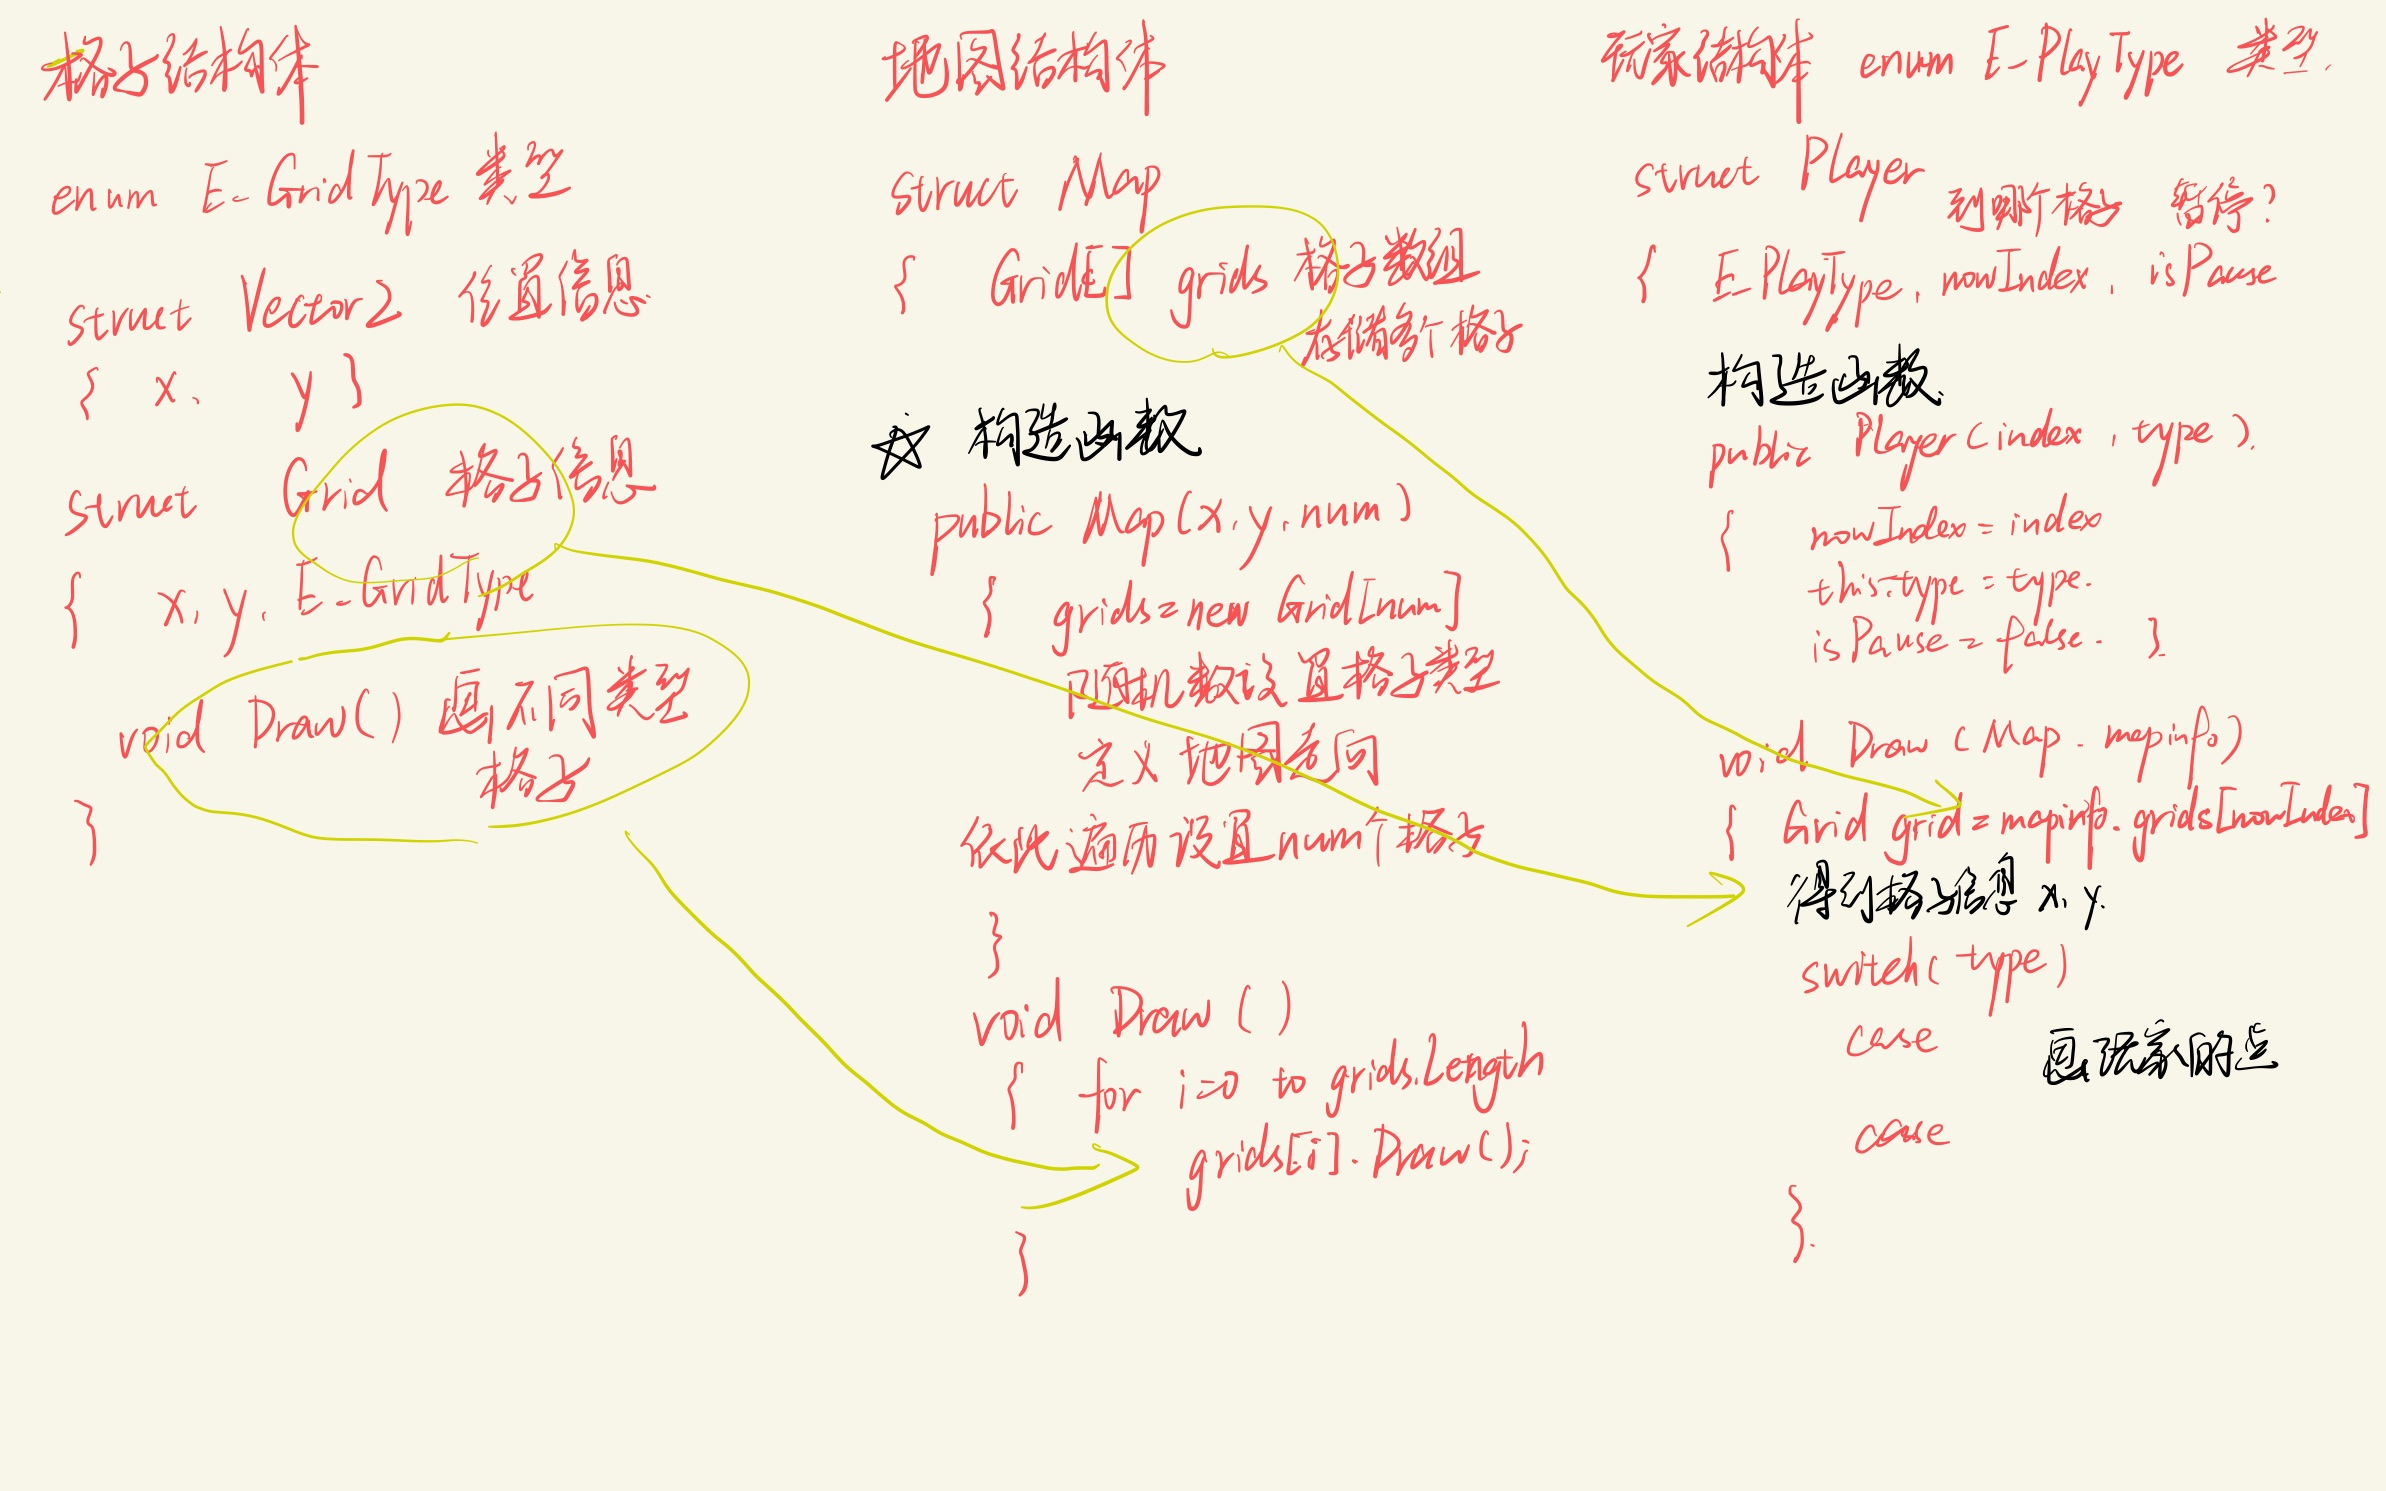 格子结构体
enum E_GridType 类型
struct Vector2 位置信息
{ x、 y }
struct Grid 格子信息
{ x, y, E_GridType
void Draw() 画不同类型
格子
}
地图结构体
struct Map
{ Grid[] grids 格子数组
存储多个格子
☆ 构造函数
public Map(x, y, num)
{ grids=new Grid[num]
随机数设置格子类型
定义地图走向
依此遍历设置num个格子
}
void Draw()
{ for i=0 to grids.Length
grids[i].Draw();
}
玩家结构体 enum E_PlayType 类型.
struct Player
到哪个格子 暂停?
{ E_PlayType, nowIndex, isPause
构造函数.
public Player(index, type).
{ nowIndex=index
this.type=type.
isPause=false. }
void Draw (Map. mapinfo)
{ Grid grid=mapinfo.grids[nowIndex]
得到格子信息 x, y.
switch(type)
case 画玩家的点
case
}.